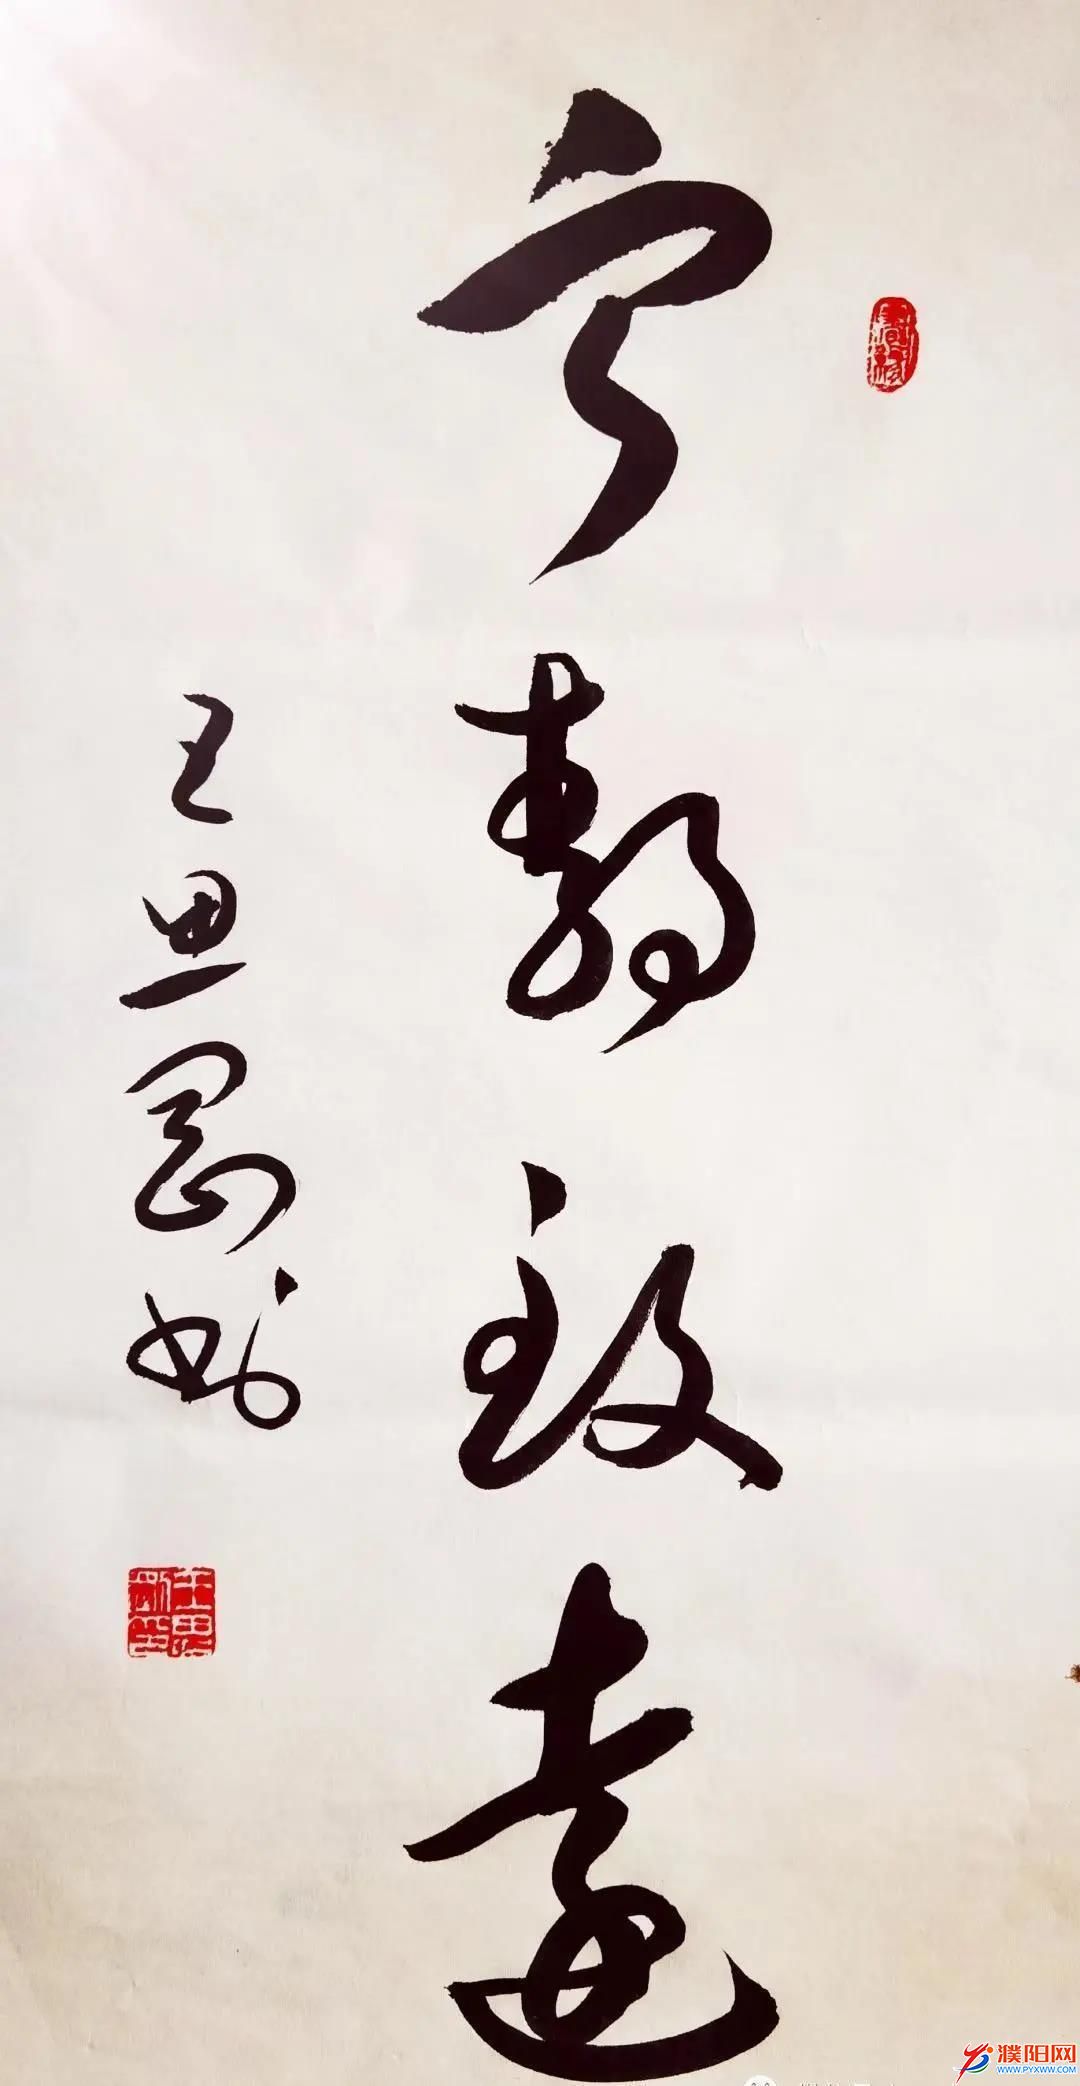 宁静致远
王思刚书
濮阳网
WWW.PYXWW.COM